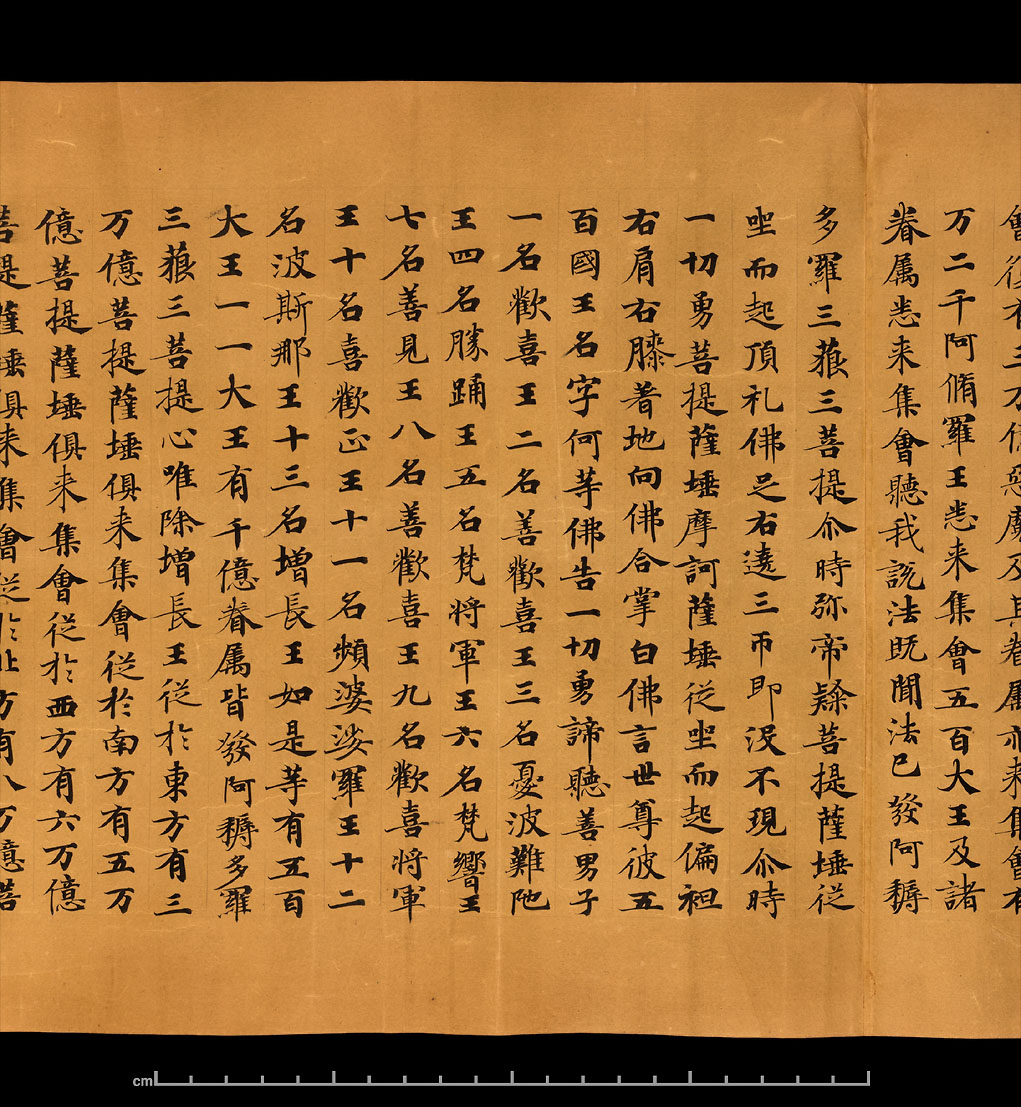 會復有三万億惡處及其眷属亦来集會有
万二千阿脩羅王悉来集會五百大王及諸
眷属悉来集會聽我說法既聞法已發阿耨
多羅三藐三菩提尒時弥帝隸菩提薩埵従
坐而起頂礼佛足右遶三帀即没不現尒時
一切勇菩提薩埵摩訶薩埵従坐而起偏袒
右肩右膝著地向佛合掌白佛言世尊彼五
百國王名字何等佛告一切勇諦聽善男子
一名歡喜王二名善歡喜王三名憂波難陁
王四名勝踊王五名梵将軍王六名梵響王
七名善見王八名善歡喜王九名歡喜将軍
王十名喜歡正王十一名頻婆娑羅王十二
名波斯那王十三名增長王如是等有五百
大王一一大王有千億眷属皆發阿耨多羅
三藐三菩提心唯除增長王従於東方有三
万億菩提薩埵俱来集會従於南方有五万
億菩提薩埵俱来集會従於西方有六万億
菩提薩埵俱来集會従於北方有八万億菩